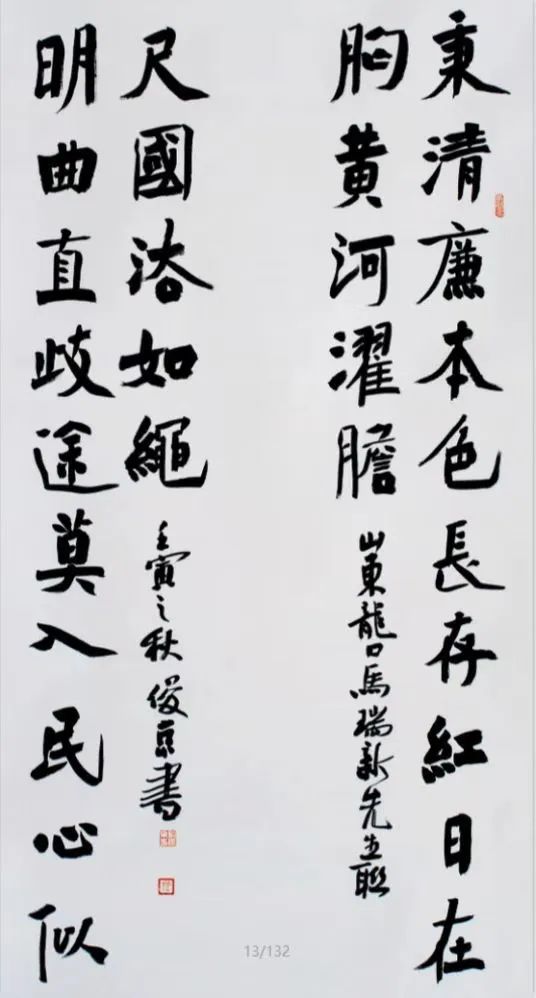 秉清廉本色長存紅日在
胸黄河濯膽
山東龍口馬瑞新先生聯
明曲直歧途莫入民心似
尺國法如繩
壬寅之秋俊京書
13/132